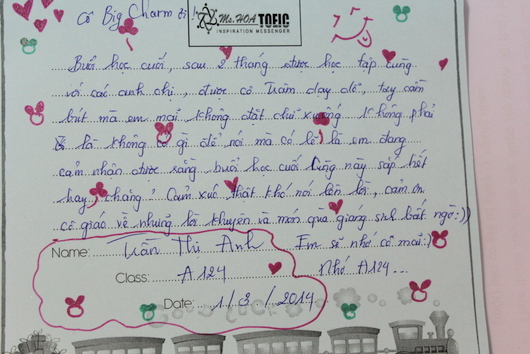 Cô Big Charm ơi!
Ms. HOA TOEIC
INSPIRATION MESSENGER
Buổi học cuối, sau 2 tháng được học tập cùng
với các anh chị, được cô Trâm dạy dỗ, tay cầm
bút mà em mãi không đặt chữ xuống. Không phải
là không có gì để nói mà có lẽ là em đang
cảm nhận được rằng buổi học cuối cùng này sắp hết
hay chăng! Cảm xúc thật khó nói lên lời, cảm ơn
cô giáo về những lời khuyên và món quà giáng sinh bất ngờ :))
Name: Trần Thị Anh Em sẽ nhớ cô mãi :)
Class: A124 Nhớ A124...
Date: 1/3/2014